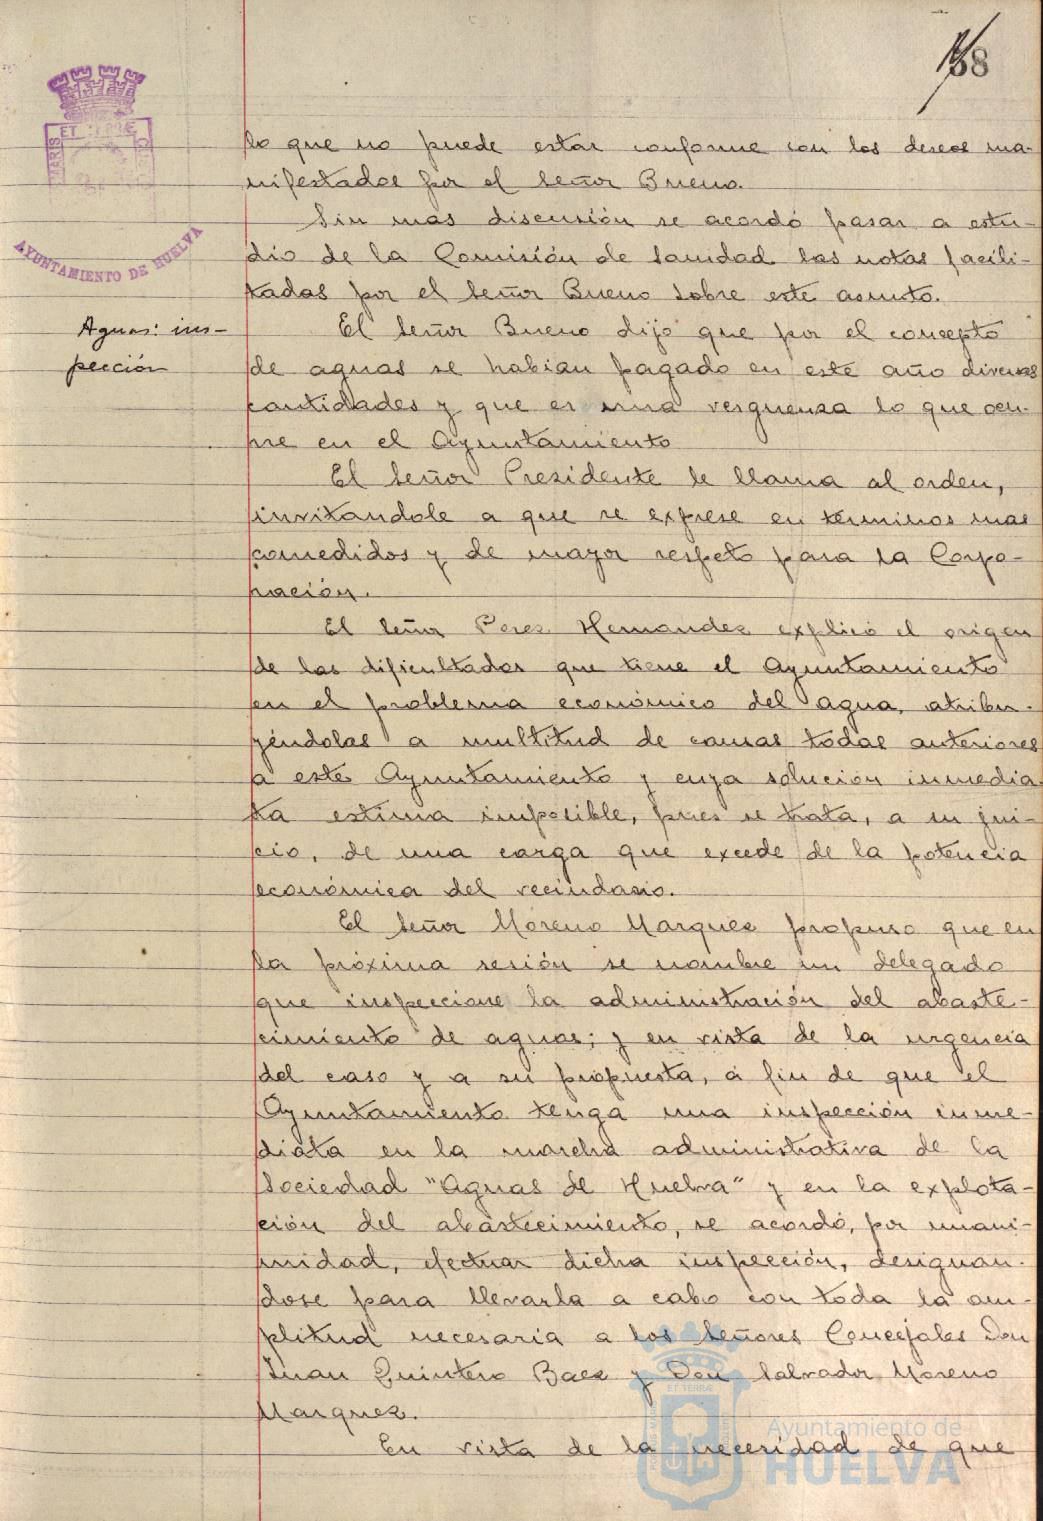 68
lo que no puede estar conforme con los deseos ma-
nifestados por el Señor Bueno.
Sin mas discusión se acordó pasar a estu-
dio de la Comisión de Sanidad las notas facili-
tadas por el Señor Bueno sobre este asunto.
Aguas: ins-
pección
El Señor Bueno dijo que por el concepto
de aguas se habian pagado en este año diversas
cantidades y que es una verguenza lo que ocu-
rre en el Ayuntamiento
El Señor Presidente le llama al orden,
invitandole a que se exprese en términos mas
comedidos y de mayor respeto para la Corpo-
ración.
El Señor Perez Hernandez explicó el origen
de las dificultades que tiene el Ayuntamiento
en el problema económico del agua, atribu-
yéndolas a multitud de causas todas anteriores
a este Ayuntamiento y cuya solución inmedia-
ta estima imposible, pues se trata, a su jui-
cio, de una carga que excede de la potencia
económica del vecindario.
El Señor Moreno Marquez propuso que en
la próxima sesión se nombre un delegado
que inspeccione la administración del abaste-
cimiento de aguas; y en vista de la urgencia
del caso y a su propuesta, a fin de que el
Ayuntamiento tenga una inspección inme-
diata en la marcha administrativa de la
Sociedad "Aguas de Huelva" y en la explota-
ción del abastecimiento, se acordó, por unani-
midad, efectuar dicha inspección, designan-
dose para llevarla a cabo con toda la am-
plitud necesaria a los Señores Concejales Don
Juan Quintero Baez y Don Salvador Moreno
Marquez.
En vista de la necesidad de que
ET TERRÆ
AYUNTAMIENTO DE HUELVA
Ayuntamiento de
HUELVA